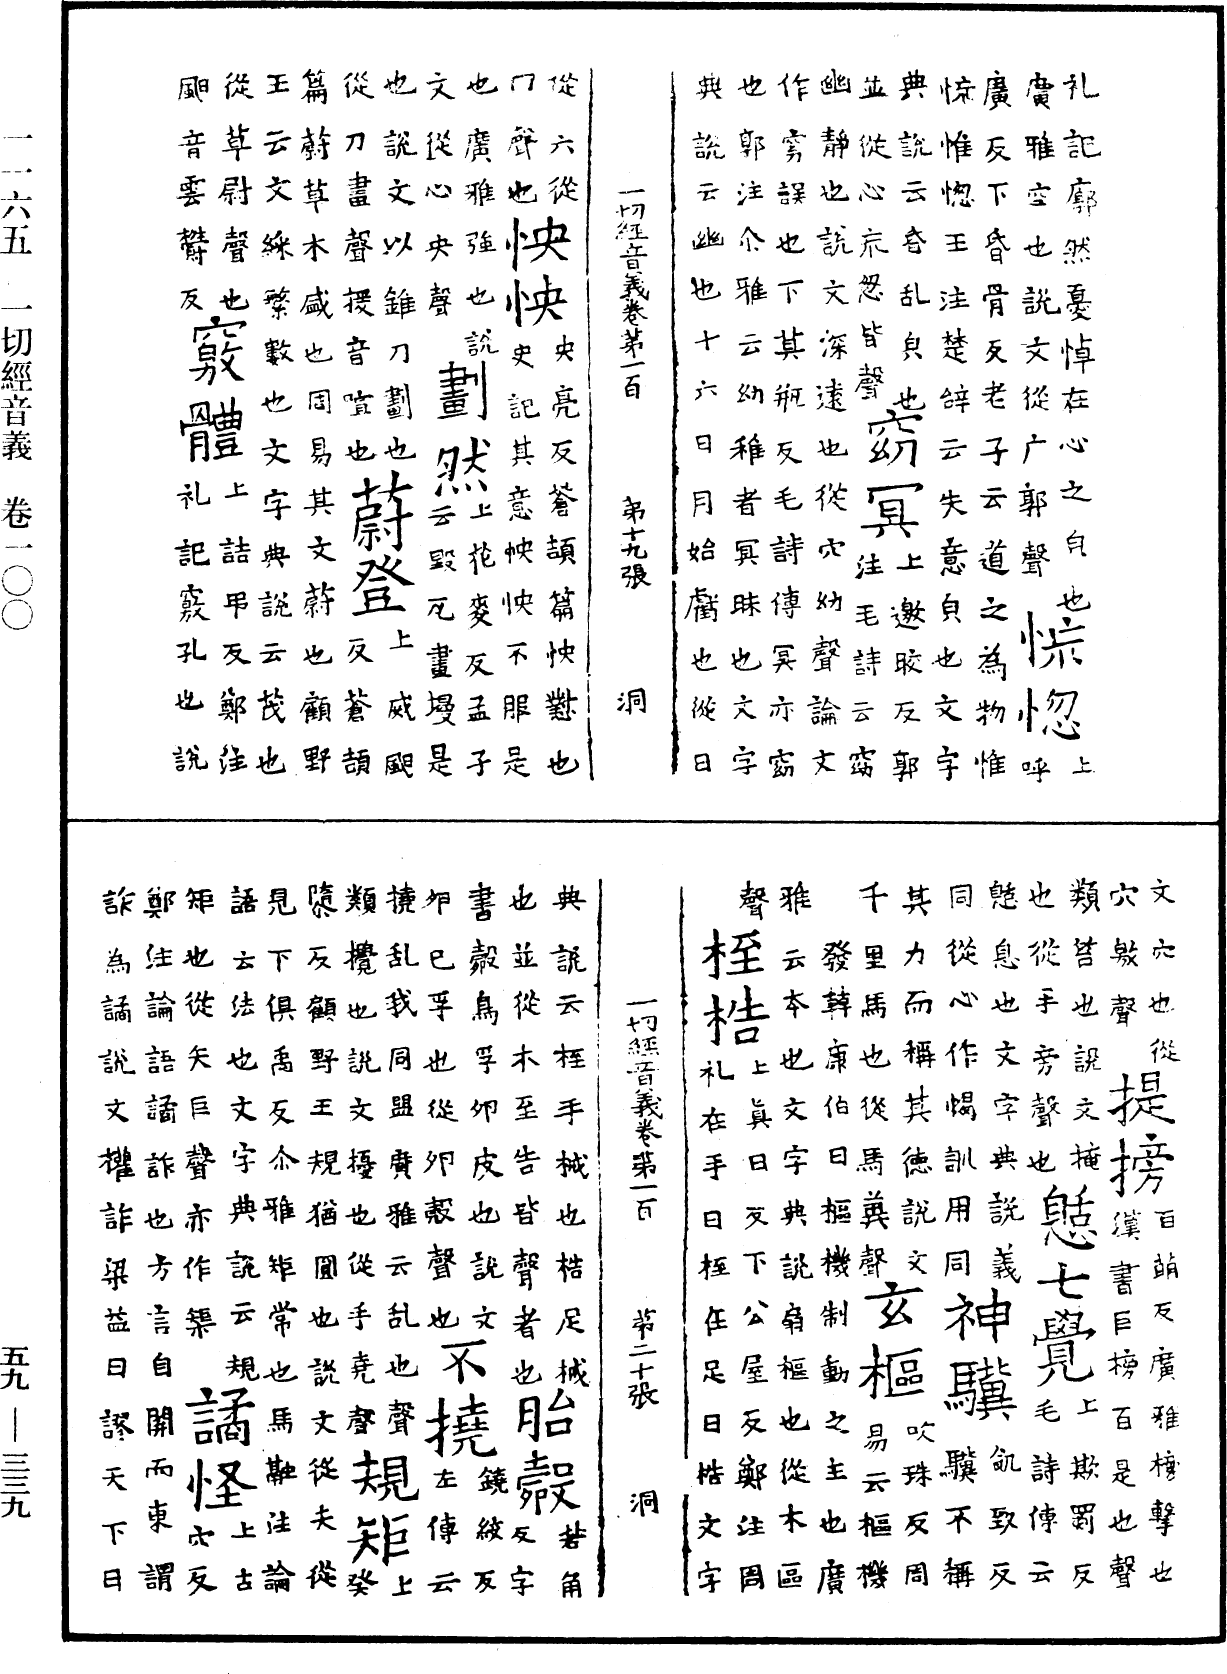 礼記廓然憂悼在心之皃也
廣雅空也說文從广郭聲
慌惚
上
呼
廣反下昏骨反老子云道之為物惟
慌惟惚王注楚辞云失意皃也文字
典說云昏乱皃也
並從心巟忽皆聲
窈冥
上邀晈反郭
注毛詩云窈
幽静也說文深遠也從穴幼聲論文
作窈誤也下莫瓶反毛詩傳冥亦窈
也郭注尒雅云幼稚者冥昧也文字
典說云幽也十六日月始虧也從日
一切經音義卷第一百 第十九張 洞
從六從
冂聲也
怏怏
央亮反蒼頡篇怏懟也
史記其意怏怏不服是
也廣雅強也說
文從心央聲
劃然
上花麦反孟子
云毀瓦畫墁是
也說文以錐刀劃也
從刀畫聲援音喧也
蔚登
上威颶
反蒼頡
篇蔚草木盛也周易其文蔚也顧野
王云文綵繁數也文字典說云茂也
從草尉聲也
颶音雲欝反
竅體
上詰弔反鄭注
礼記竅孔也說
文穴也從
穴敫聲
提搒
百萌反廣雅搒擊也
漢書巨搒百是也聲
類笞也說文掩
也從手旁聲也
憇七覺
上欺罽反
毛詩傳云
憇息也文字典說義
同從心作愒訓用同
神驥
飢致反
驥不稱
其力而稱其德說文
千里馬也從馬兾聲
玄樞
吹珠反周
易云樞機
發韓康伯曰樞機制動之主也廣
雅云本也文字典說扇樞也從木區
聲
桎梏
上真日反下公屋反鄭注周
礼在手曰桎在足曰梏文字
一切經音義卷第一百 第二十張 洞
典說云桎手械也梏足械
也並從木至告皆聲者也
胎㲉
苦角
反字
書㲉鳥孚卵皮也說文
卵已孚也從卵殻聲也
不撓
鐃絞反
左傳云
撓乱我同盟廣雅云乱也聲
類攪也說文擾也從手堯聲
規矩
上
癸
隨反顧野王規猶圓也說文從夫從
見下俱禹反尒雅矩常也馬融注論
語云法也文字典說云規
矩也從矢巨聲亦作榘
譎怪
上古
穴反
鄭注論語譎詐也方言自關而東謂
詐為譎說文權詐梁益曰謬天下曰
一一六五 一切經音義 卷一〇〇
五九—三三九